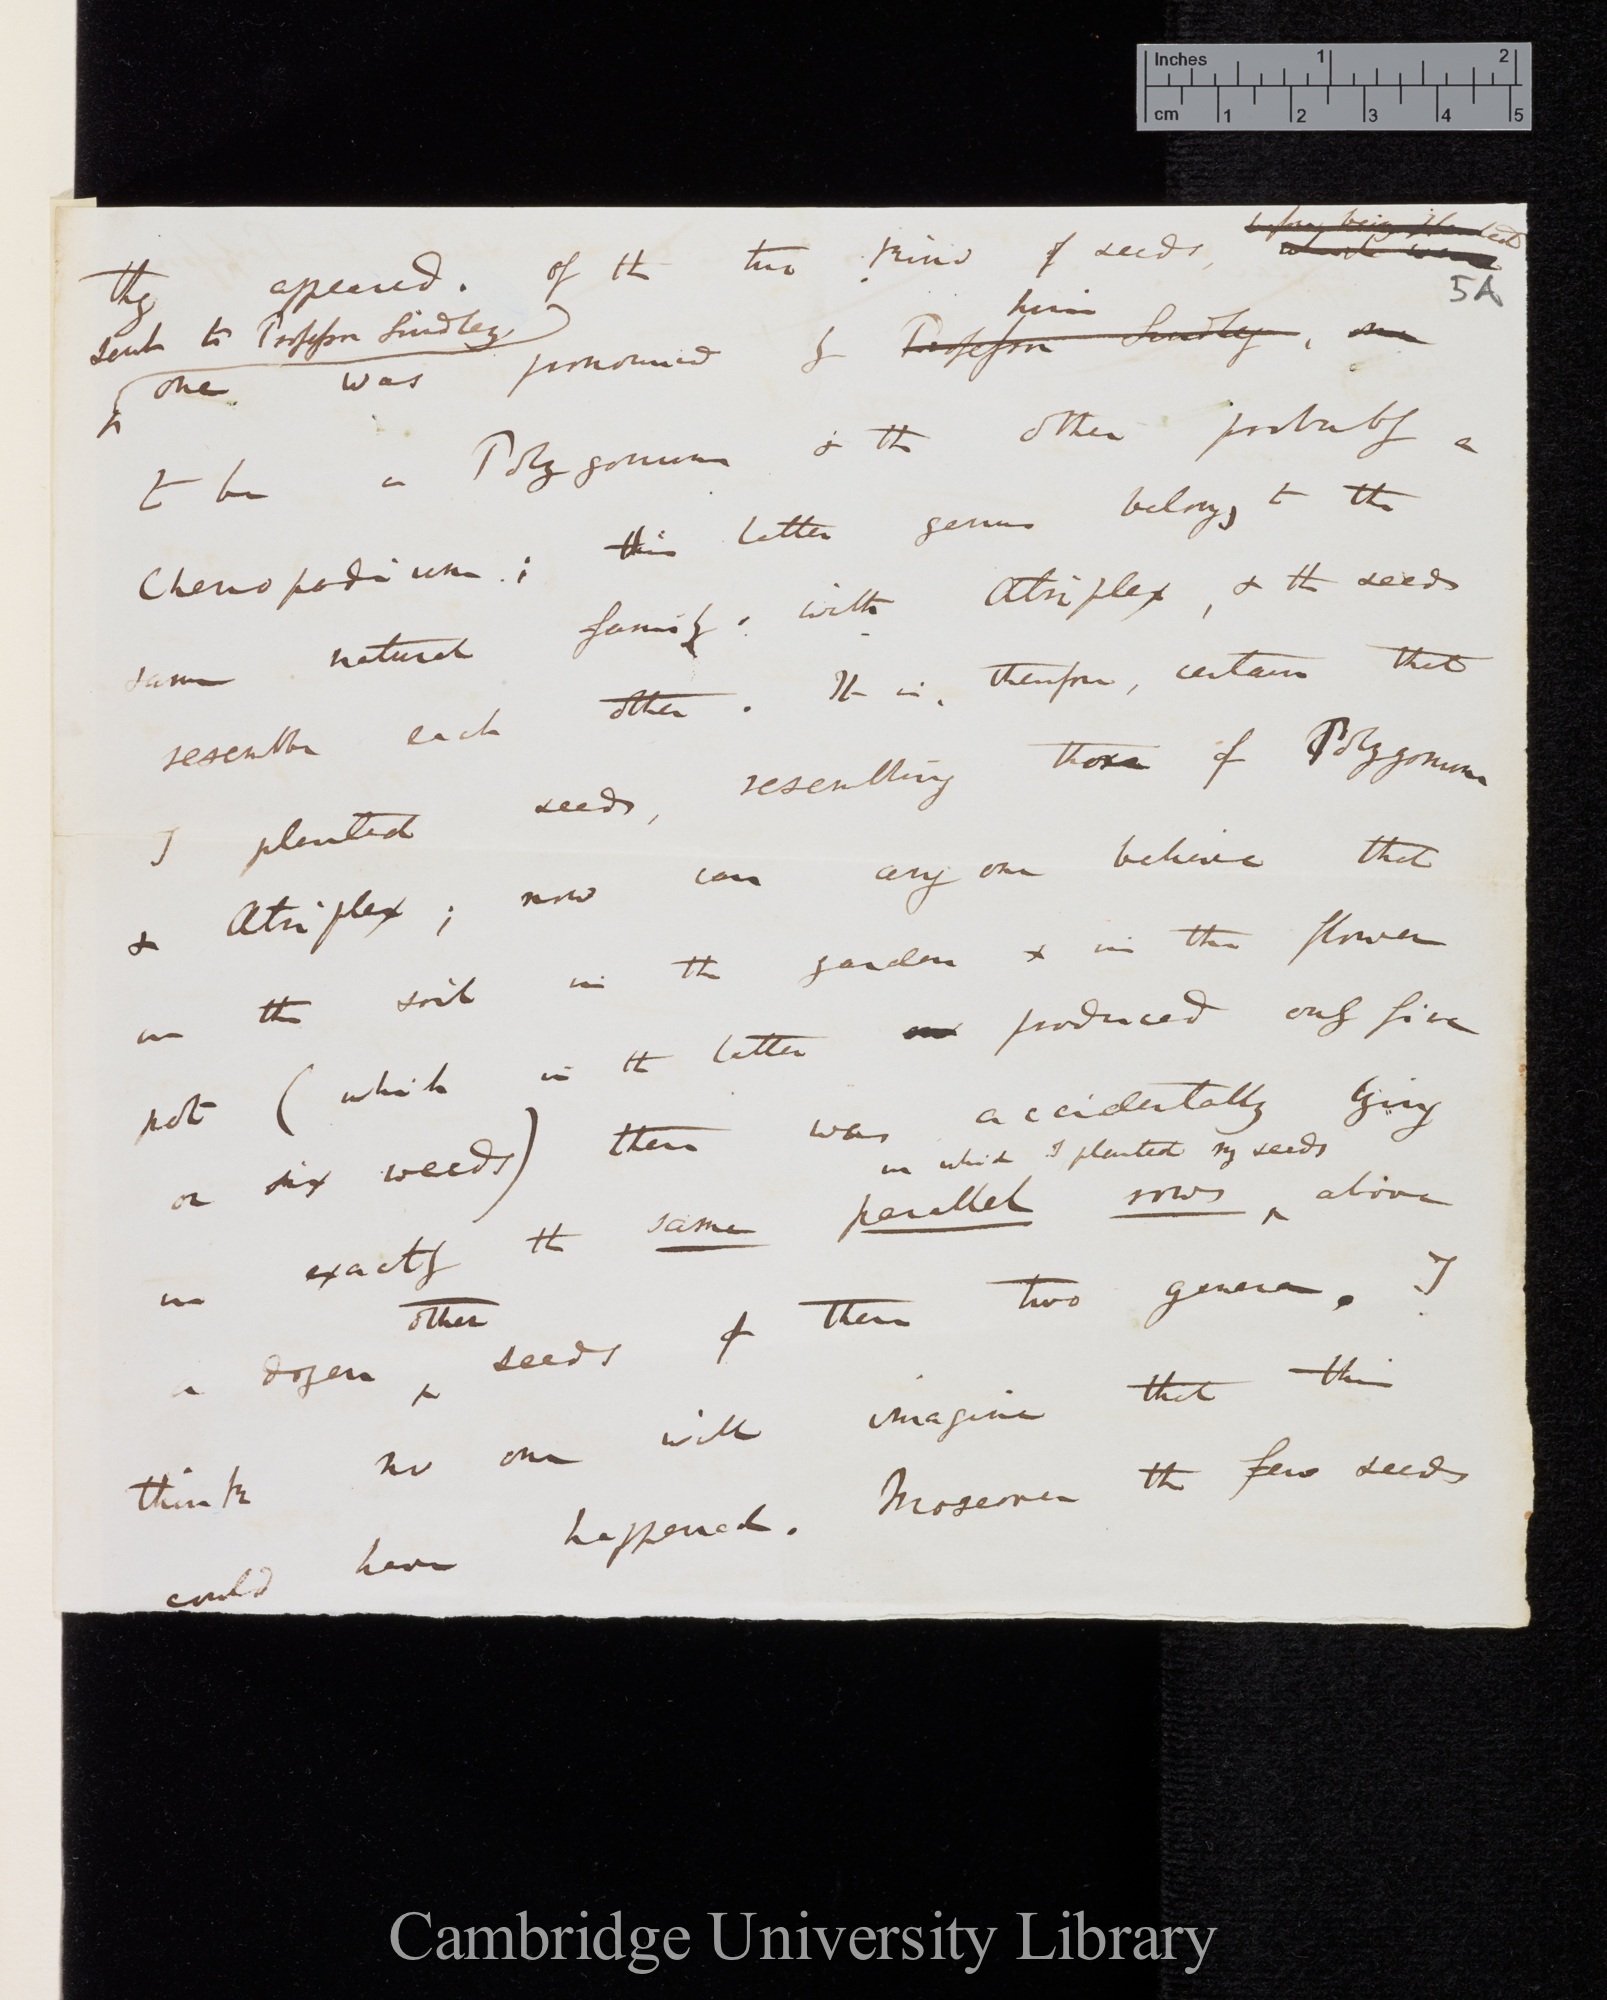 Inches 1 2
cm 1 2 3 4 5
before being planted
they appeared. Of the two kinds of seeds, which were
5A
sent to Professor Lindley
him
one was pronounced by Professor Lindley, one
to be a Polygonum & the other probably a
Chenopodium; this latter genus belongs to the
same natural family, with Atriplex, & the seeds
resemble each other. It is, therefore, certain that
I planted seeds, resembling those of Polygonum
& Atriplex; now can any one believe that
in the soil in the garden & in the flower
pot (which in the latter produced only five
or six weeds) there was accidentally lying
in which I planted my seeds
in exactly the same parallel rows above
other
a dozen seeds of these two genera. I
think no one will imagine that this
could have happened. Moreover the few seeds
Cambridge University Library